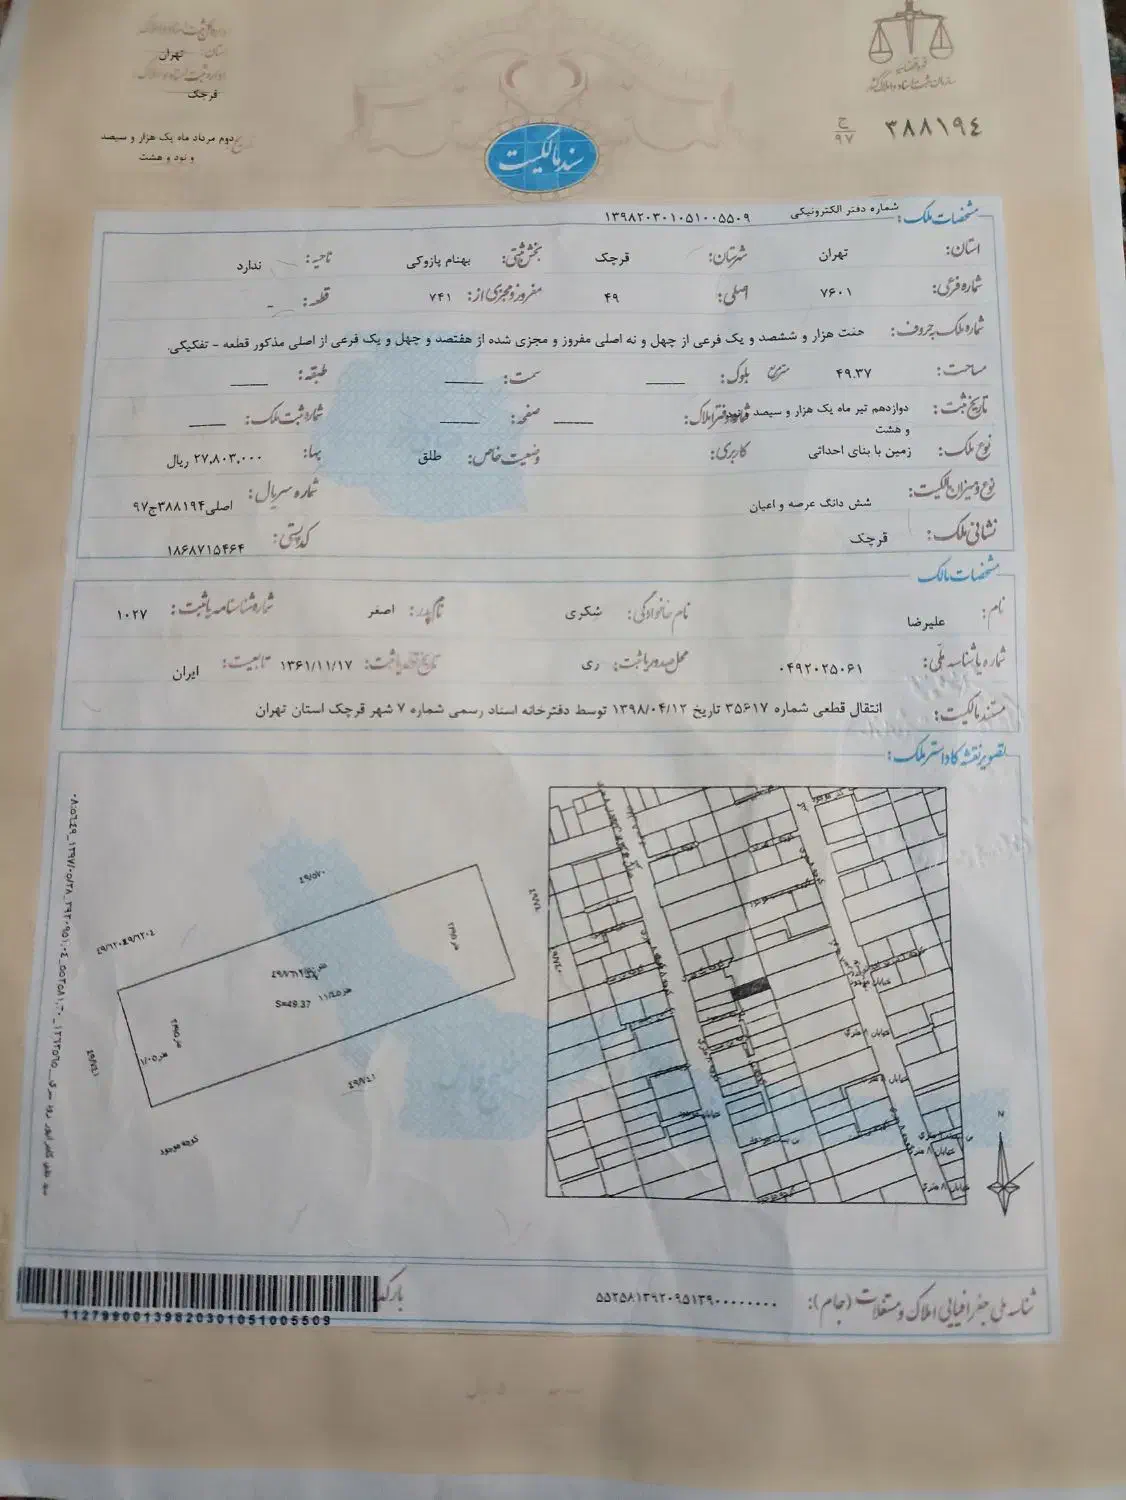 اداره کل ثبت اسناد و املاک
استان: تهران
اداره ثبت اسناد و املاک
قرچک
دوم مرداد ماه یک هزار و سیصد
و نود و هشت
قوه قضائیه
سازمان ثبت اسناد و املاک کشور
۳۸۸۱۹۴ ج ۹۷
سند مالکیت
مشخصات ملک: شماره دفتر الکترونیکی ۱۳۹۸۲۰۳۰۱۰۵۱۰۰۵۵۰۹
استان: تهران شهرستان: قرچک بخش ثبتی: بهنام پازوکی ناحیه: ندارد
شماره فرعی: ۷۶۰۱ اصلی: ۴۹ مفروز و مجزی از: ۷۴۱ قطعه: -
شماره ملک به حروف: هفت هزار و ششصد و یک فرعی از چهل و نه اصلی مفروز و مجزی شده از هفتصد و چهل و یک فرعی از اصلی مذکور قطعه - تفکیکی.
مساحت: ۴۹.۳۷ متر مربع بلوک: ____ سمت: ____ طبقه: ____
تاریخ ثبت: دوازدهم تیر ماه یک هزار و سیصد و نود و هشت شماره دفتر املاک: ____ صفحه: ____ شماره ثبت ملک: ____
نوع ملک: زمین با بنای احداثی کاربری: وضعیت خاص: طلق بها: ۲۷,۸۰۳,۰۰۰ ریال
نوع و میزان مالکیت: شش دانگ عرصه و اعیان شماره سریال: اصلی۳۸۸۱۹۴ج۹۷
نشانی ملک: قرچک کد پستی: ۱۸۶۸۷۱۵۴۶۴
مشخصات مالک
نام: علیرضا نام خانوادگی: شکری نام پدر: اصغر شماره شناسنامه یا ثبت: ۱۰۲۷
شماره یا شناسه ملی: ۰۴۹۲۰۲۵۰۶۱ محل صدور یا ثبت: ری تاریخ تولد یا ثبت: ۱۳۶۱/۱۱/۱۷ تابعیت: ایران
مستند مالکیت: انتقال قطعی شماره ۳۵۶۱۷ تاریخ ۱۳۹۸/۰۴/۱۲ توسط دفترخانه اسناد رسمی شماره ۷ شهر قرچک استان تهران
تصویر نقشه کاداستر ملک:
۴۹/۵۷۰
S=49.37
۴۹/۷۴۱
کوچه موجود
خیابان ۸ متری
N
شناسه ملی جغرافیایی املاک و مستغلات (جام): ۵۵۲۵۸۱۳۹۲۰۹۵۱۳۹۰۰۰۰۰۰۰۰
بارکد
11279900139820301051005509